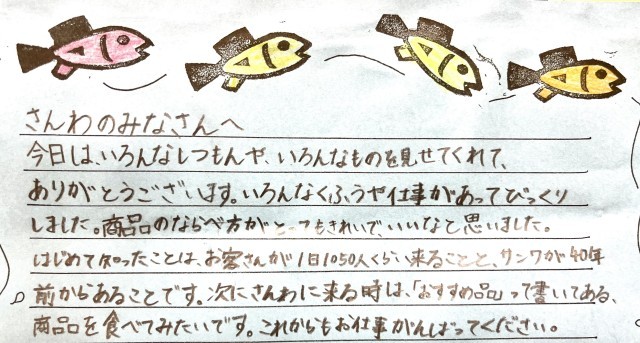 さんわのみなさんへ
今日は、いろんなしつもんや、いろんなものを見せてくれて、
ありがとうございます。いろんなくふうや仕事があってびっくり
しました。商品のならべ方がとってもきれいで、いいなと思いました。
はじめて知ったことは、お客さんが1日1050人くらい来ることと、サンワが40年
前からあることです。次にさんわに来る時は、「おすすめ品」って書いてある、
商品を食べてみたいです。これからもお仕事がんばってください。